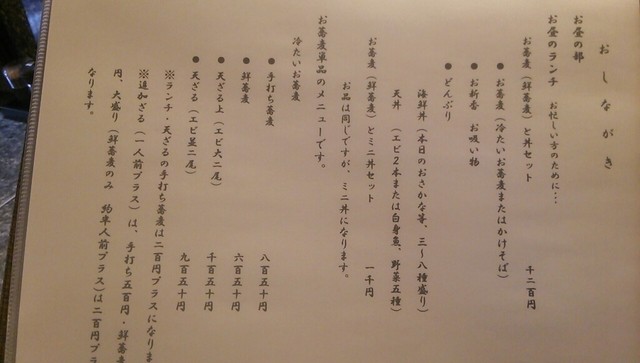 おしながき
お昼の部
お昼のランチ お忙しい方のために…
お蕎麦(鮮蕎麦)と丼セット 千二百円
●お蕎麦(冷たいお蕎麦またはかけそば)
●お新香 お吸い物
●どんぶり
海鮮丼(本日のおさかな等、三〜八種盛り)
天丼 (エビ2本または白身魚、野菜五種)
お蕎麦(鮮蕎麦)とミニ丼セット 一千円
お品は同じですが、ミニ丼になります。
お蕎麦単品のメニューです。
冷たいお蕎麦
●手打ち蕎麦 八百五十円
●鮮蕎麦 六百五十円
●天ざる上(エビ大二尾) 千百五十円
●天ざる(エビ並二尾) 九百五十円
※ランチ・天ざるの手打ち蕎麦は二百円プラスになりま
※追加ざる(一人前プラス)は、手打ち五百円・鮮蕎麦
円、大盛り(鮮蕎麦のみ 約半人前プラス)は二百円プラ
なります。